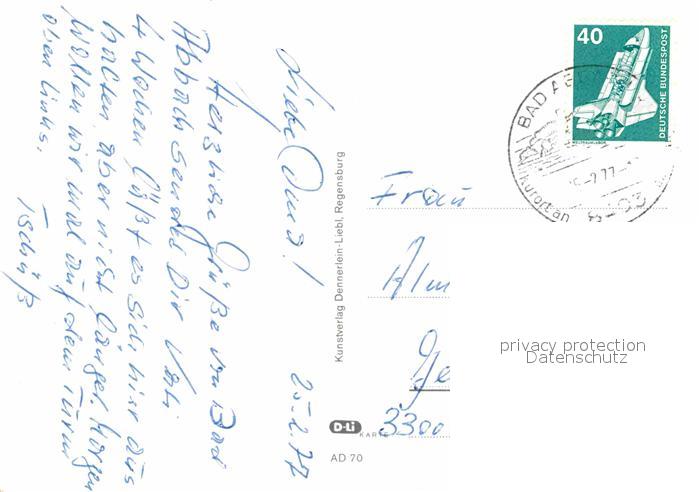 25.2.77
Liebe Oma!
Herzliche Grüße von Bad
Abbach sendet Dir
4 Wochen läßt es sich hier aus
halten aber nicht länger. Morgen
wollen wir mal auf dem Turm
oben links.
Tschüß
Kunstverlag Dennerlein-Liebl, Regensburg
D-Li KARTE
AD 70
40
DEUTSCHE BUNDESPOST
BAD
77
Kurort an
8403
Frau
3300
privacy protection
Datenschutz